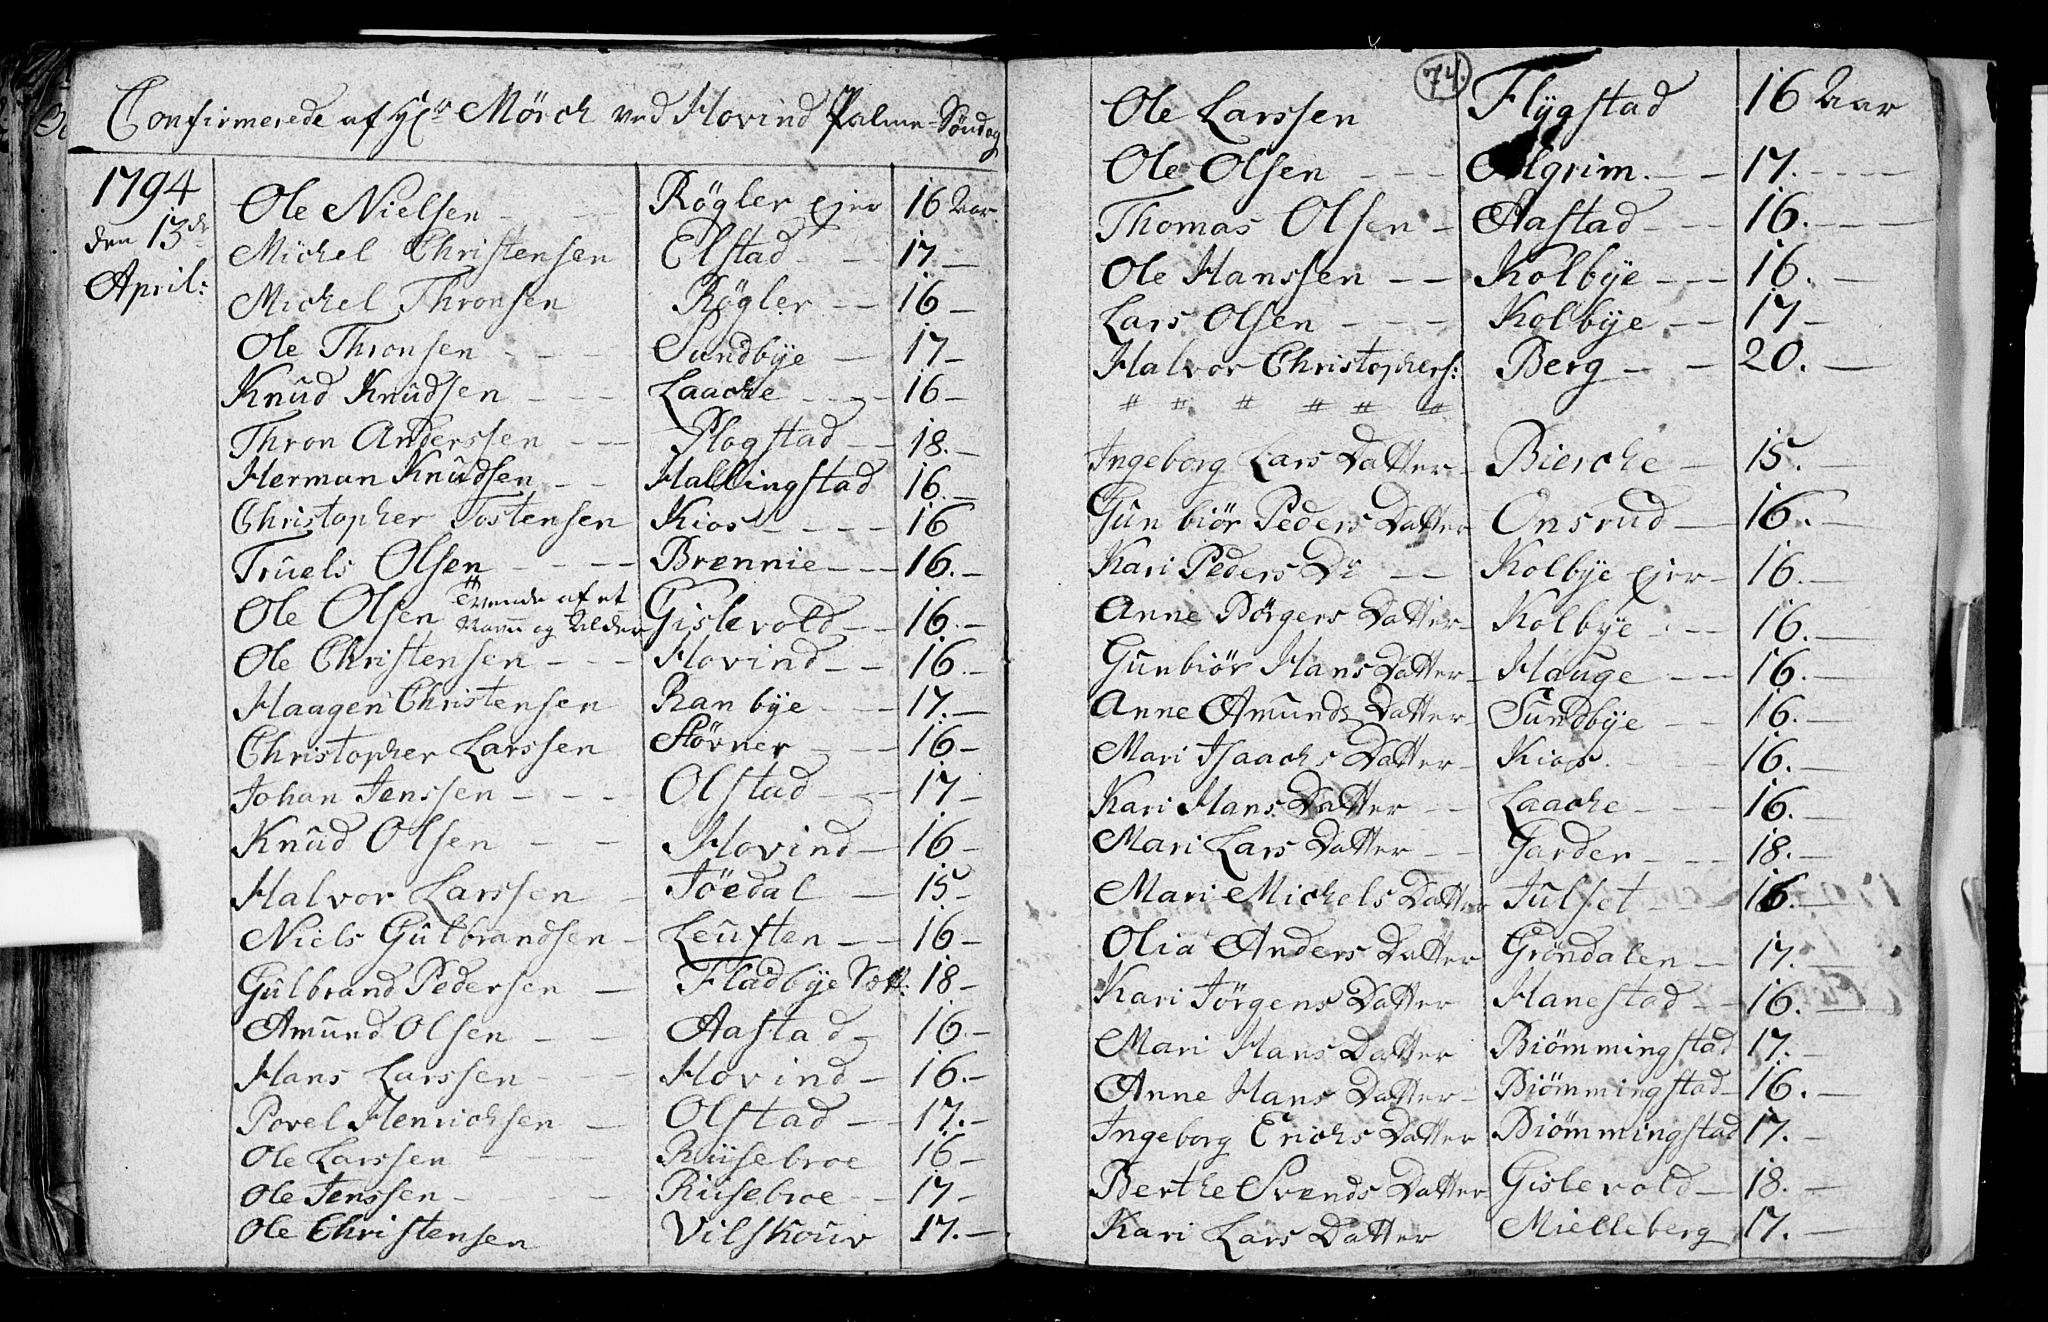 Confirmerede af Hr Mörch ved Hovind Palme-Söndag
1794
den 13de
April:
Ole Nielsen - - Rögler ejer 16 Aar
Michel Christensen Elstad - - 17. -
Michel Thronsen Rögler - - 16 -
Ole Thronsen - - - Sundbÿe - 17 -
Knud Knudsen - - - Laache - - - 16 -
Thron Anderssen - - Plogstad - - 18. -
Herman Knudsen - - Hallingstad 16. -
Christopher Tostensen Kios - - - 16
Truels Olsen - - - - Brennie - - - 16. -
Ole Olsen # Tvende af et Navn og Alder Gislevold - - 16. -
Ole Christensen - - - Hovind - - 16. -
Haagen Christensen Ranbye - - - 17. -
Christopher Larssen Störner - - - 16 -
Johan Jenssen - - - Olstad - - 17 -
Knud Olsen - - Hovind - 16 -
Halvor Larssen - Töedal - 15 -
Niels Gulbrandsen - Leuften - - 16 -
Gulbrand Pedersen - Fladbÿe 18 -
Amund Olsen - - Aastad - 16 -
Hans Larssen - - - Hovind - 16. -
Povel Henrichsen - Olstad - - 17. -
Ole Larssen - - - Riisebroe 16 -
Ole Jenssen - - - Riisebroe - - 17 -
Ole Christensen Vilskouv 17. -
74.
Ole Larssen Flÿgstad 16 Aar
Ole Olsen - - - Algrim. - - 17. - - - -
Thomas Olsen - Aastad - - - 16. - - - -
Ole Hanssen - - Kolbÿe - - - 16. - -
Lars Olsen - - - Kolbÿe - - 17 -
Halvor Christophers: Berg - - 20. -
# # # # # #
Ingeborg Lars Datter - Bierche - 15. -
Gunbiör Peders Datter Onsrud - 16. -
Kari Peders Dr - - Kolbÿe ejer - 16. -
Anne Börgers Datter - Kolbÿe - - - 16. -
Gunbiör Hans Datter - Hauge - - 16. -
Anne Amunds Datter - Sundbÿe - - 16. -
Mari Isaachs Datter - Kios. - - - 16. -
Kari Hans Datter - - Laache - - - 16. -
Mari Lars Datter - - Garder - - - 18. -
Mari Michels Datter Julset - - - 16. -
Olia Anders Datter Gröndalen - 17. -
Kari Jörgens Datter Hanestad - 16. -
Mari Hans Datter Biömmingstad 17. -
Anne Hans Datter - Biömmingstad - 16. -
Ingeborg Erichs Datter Biömmingstad 17. -
Berthe Svends Datter Gislevold - 18. -
Kari Lars Datter Mielleberg 17. -